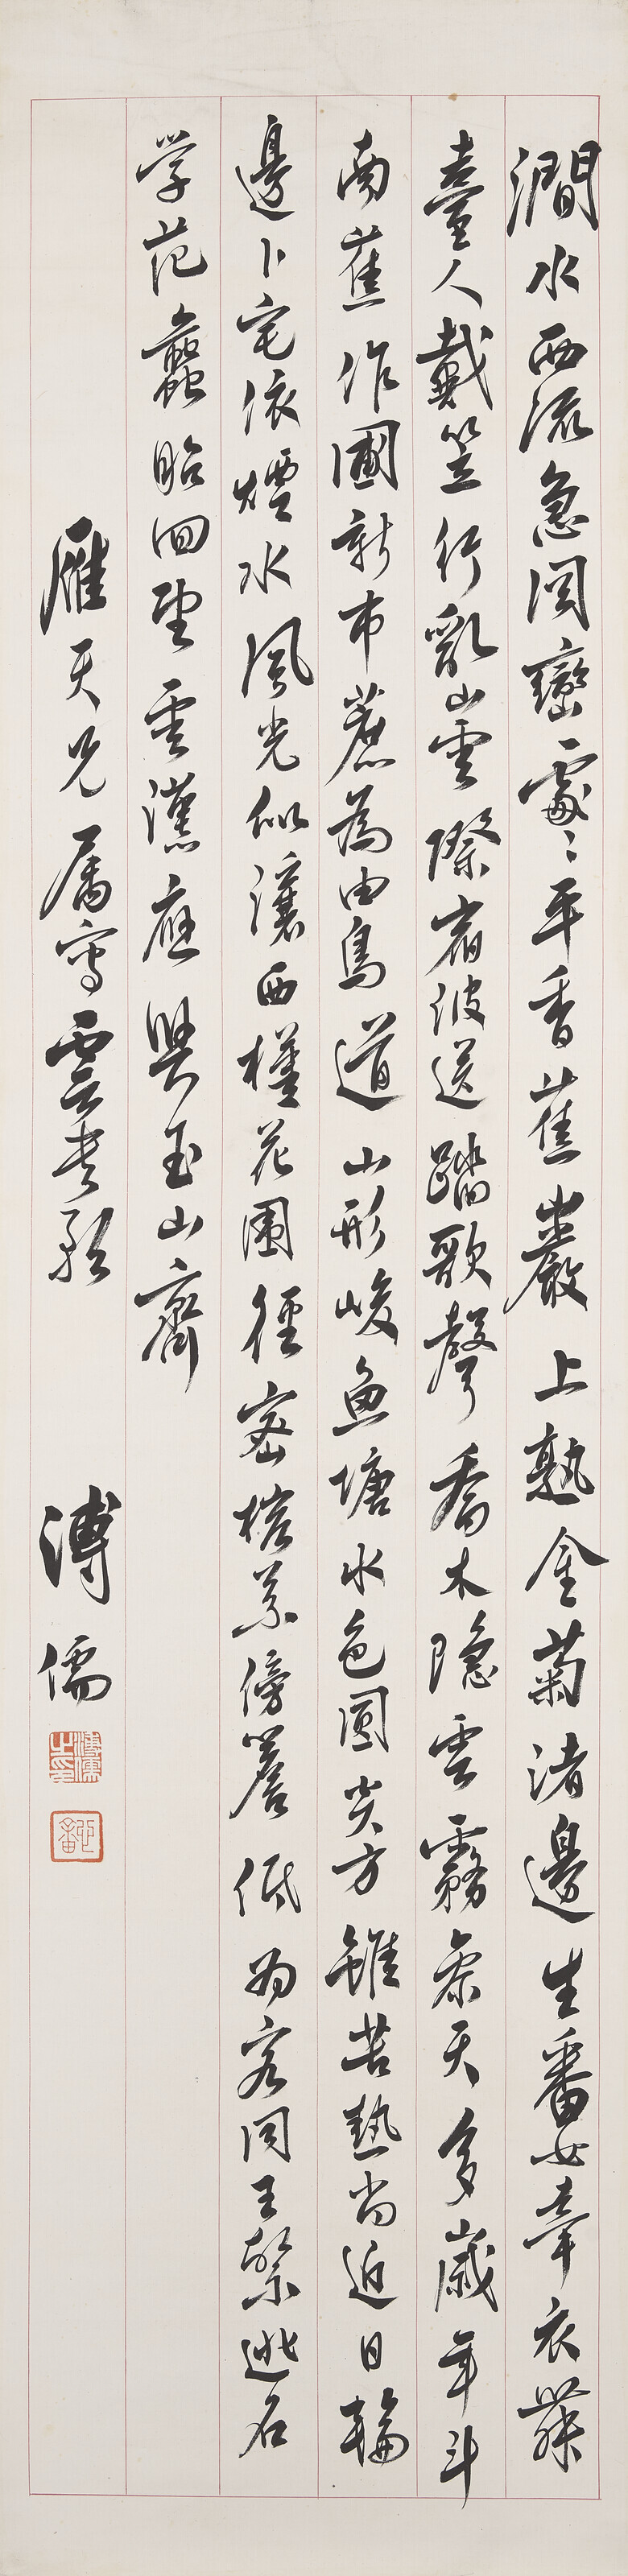 澗水西流急岡巒處〻平香蕉巖上熟金菊渚邊生番女牽衣舞
臺人戴笠行亂山雲際宿彼送踏歌聲喬木隱雲霧參天多歲年斗
南蕉作圃新市蔗為田鳥道山形峻魚塘水色圓炎方雖苦熱尚近日輪
邊卜宅依煙水風光似瀼西槿花圍徑密榕葉傍簷低為客同王粲逃名
学范蠡昭回望雲漢應與玉山齊
雁天兄属寫 溥儒
溥儒之印